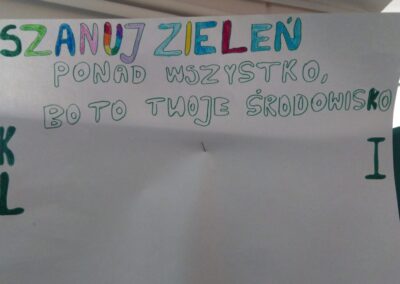 SZANUJ ZIELEŃ
PONAD WSZYSTKO,
BO TO TWOJE ŚRODOWISKO
K I
L